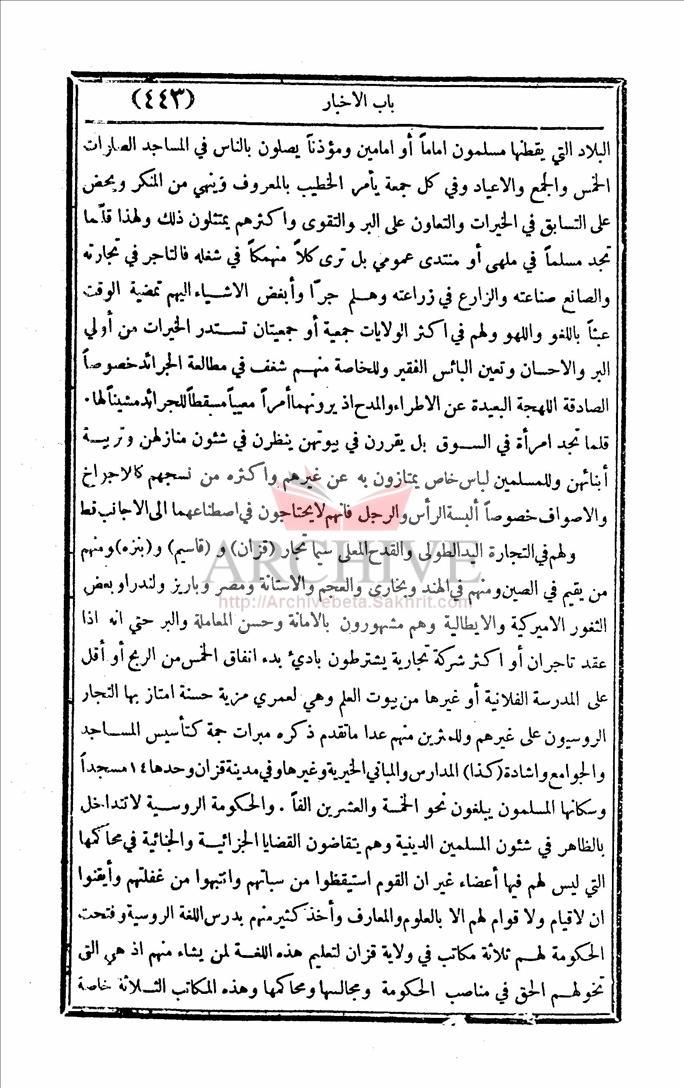 باب الاخبار (٤٤٣)
البلاد التي يقطنها مسلمون اماماً أو امامين ومؤذناً يصلون بالناس في المساجد الصلوات
الخمس والجمع والاعياد وفي كل جمعة يأمر الخطيب بالمعروف وينهي من المنكر ويحض
على التسابق في الخيرات والتعاون على البر والتقوى واكثرهم يمتثلون ذلك ولهذا قلّما
تجد مسلماً في ملهى أو منتدى عمومي بل ترى كلاً منهمكاً في شغله فالتاجر في تجارته
والصانع صناعته والزارع في زراعته وهلم جرّا وأبغض الاشياء اليهم تمضية الوقت
عبثاً باللغو واللهو ولهم في اكثر الولايات جمعية أو جمعيتان تستدر الخيرات من أولي
البر والاحسان وتعين البائس الفقير وللخاصة منهم شغف في مطالعة الجرائد خصوصاً
الصادقة اللهجة البعيدة عن الاطراء والمدح اذ يرونهما أمراً معيباً مسقطاً للجرائد مشيناً لها ٠
قلما تجد امرأة في السوق بل يقررن في بيوتهن ينظرن في شئون منازلهن وتربية
أبنائهن وللمسلمين لباس خاص يمتازون به عن غيرهم واكثره من نسجهم كالاجراخ
والاصواف خصوصاً ألبسة الرأس والرجل فانهم لا يحتاجون في اصطناعهما الى الاجانب قط
ولهم في التجارة اليد الطولى والقدح المعلى سيما تجار (قزان) و (قاسيم) و (بنزه) ومنهم
من يقيم في الصين ومنهم في الهند وبخارى والعجم والاستانة ومصر وباريز ولندرا وبعض
الثغور الاميركية والايطالية وهم مشهورون بالامانة وحسن المعاملة والبر حتي انه اذا
عقد تاجران أو اكثر شركة تجارية يشترطون بادئ بدء انفاق الخمس من الربح أو أقل
على المدرسة الفلانية أو غيرها من بيوت العلم وهي لعمري مزية حسنة امتاز بها التجار
الروسيون على غيرهم وللمثرين منهم عدا ماتقدم ذكره مبرات جمة كتأسيس المساجد
والجوامع واشادة (كذا) المدارس والمباني الخيرية وغيرها وفي مدينة قزان وحدها ١٤ مسجداً
وسكانها المسلمون يبلغون نحو الخمسة والعشرين الفاً . والحكومة الروسية لا تتداخل
بالظاهر في شئون المسلمين الدينية وهم يتقاضون القضايا الجزائية والجنائية في محاكمها
التي ليس لهم فيها أعضاء غير ان القوم استيقظوا من سباتهم وانتبهوا من غفلتهم وأيقنوا
ان لا قيام ولا قوام لهم الا بالعلوم والمعارف وأخذ كثير منهم بدرس اللغة الروسية وفتحت
الحكومة لهم ثلاثة مكاتب في ولاية قزان لتعليم هذه اللغة لمن يشاء منهم اذ هي التي
تخولهم الحق في مناصب الحكومة ومجالسها ومحاكمها وهذه المكاتب الثلاثة خاصة
ARCHIVE
http://Archivebeta.Sakhrit.com